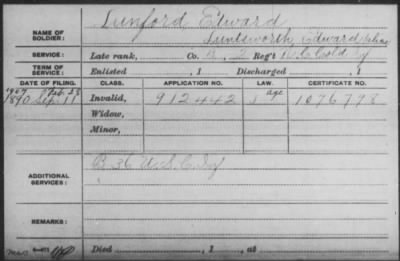 Lunford Edward
NAME OF SOLDIER: Lunsworth, Edward alias
SERVICE: Late rank, Co. B, 2 Reg't U.S. Cold
TERM OF SERVICE: Enlisted , 1 Discharged , 1
DATE OF FILING. CLASS. APPLICATION NO. LAW. CERTIFICATE NO.
1907 Feb. 25 age
1890 Sep. 11 Invalid, 912442 1076778
Widow,
Minor,
ADDITIONAL SERVICES: B 36 U.S.C. Inf
REMARKS:
Died , 1 , at